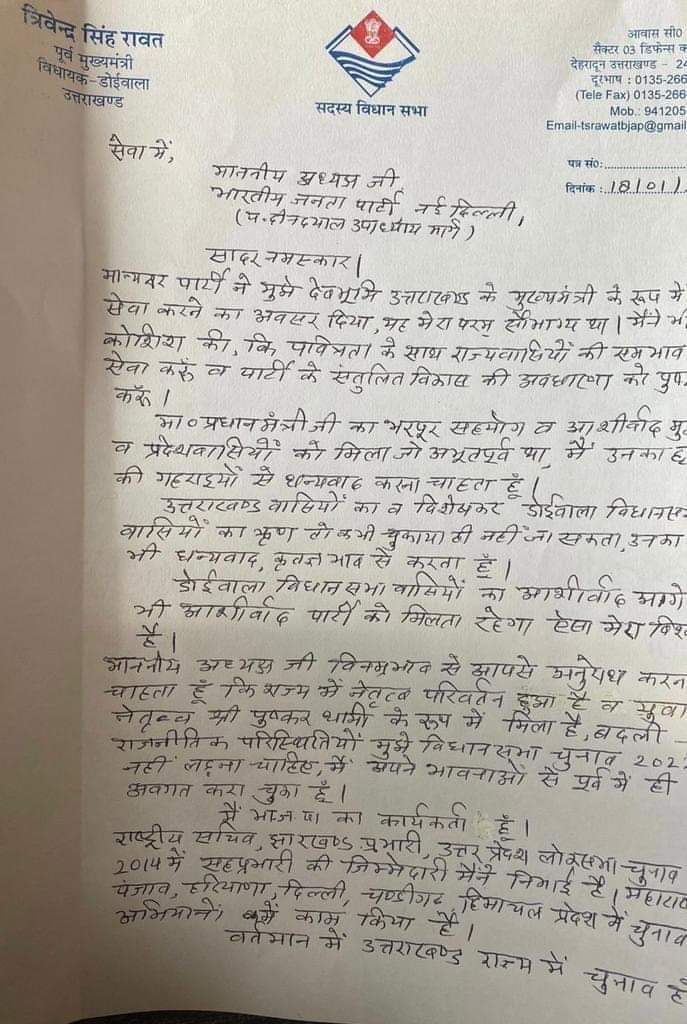 त्रिवेन्द्र सिंह रावत
पूर्व मुख्यमंत्री
विधायक-डोईवाला
उत्तराखण्ड
सदस्य विधान सभा
आवास सी0
सैक्टर 03 डिफेन्स
देहरादून उत्तराखण्ड - 24
दूरभाष : 0135-266
(Tele Fax) 0135-266
Mob.: 941205
Email-tsrawatbjap@gmail
पत्र सं०:
दिनांक : 18/01/
सेवा में,
माननीय अध्यक्ष जी
भारतीय जनता पार्टी, नई दिल्ली,
(पं. दीनदयाल उपाध्याय मार्ग)
सादर नमस्कार।
मान्यवर पार्टी ने मुझे देवभूमि उत्तराखण्ड के मुख्यमंत्री के रूप में
सेवा करने का अवसर दिया, यह मेरा परम सौभाग्य था। मैंने भी
कोशिश की, कि पवित्रता के साथ राज्यवासियों की समभाव
सेवा करूँ व पार्टी के संतुलित विकास की अवधारणा को पुष्
करूँ।
मा० प्रधानमंत्री जी का भरपूर सहयोग व आशीर्वाद मु
व प्रदेशवासियों को मिला जो अभूतपूर्व था, मैं उनका
की गहराइयों से धन्यवाद करना चाहता हूँ।
उत्तराखण्ड वासियों का व विशेषकर डोईवाला विधानस
वासियों का ऋण तो कभी चुकाया ही नहीं जा सकता, उनका
भी धन्यवाद, कृतज्ञ भाव से करता हूँ।
डोईवाला विधानसभा वासियों का आशीर्वाद आगे
भी आशीर्वाद पार्टी को मिलता रहेगा ऐसा मेरा विश
है।
माननीय अध्यक्ष जी विनम्रभाव से आपसे अनुरोध करन
चाहता हूँ कि राज्य में नेतृत्व परिवर्तन हुआ है व युवा
नेतृत्व श्री पुष्कर धामी के रूप में मिला है, बदली
राजनीतिक परिस्थितियों मुझे विधानसभा चुनाव 202
नहीं लड़ना चाहिए, मैं अपने भावनाओं से पूर्व में ही
अवगत करा चुका हूँ।
मैं भाजपा का कार्यकर्ता हूँ।
राष्ट्रीय सचिव, झारखण्ड प्रभारी, उत्तर प्रदेश लोकसभा चुनाव
2014 में सहप्रभारी की जिम्मेदारी मैंने निभाई है। महारा
पंजाव, हरियाणा, दिल्ली, चण्डीगढ, हिमाचल प्रदेश में चुनाव
अभियानों में काम किया है।
वर्तमान में उत्तराखण्ड राज्य में चुनाव